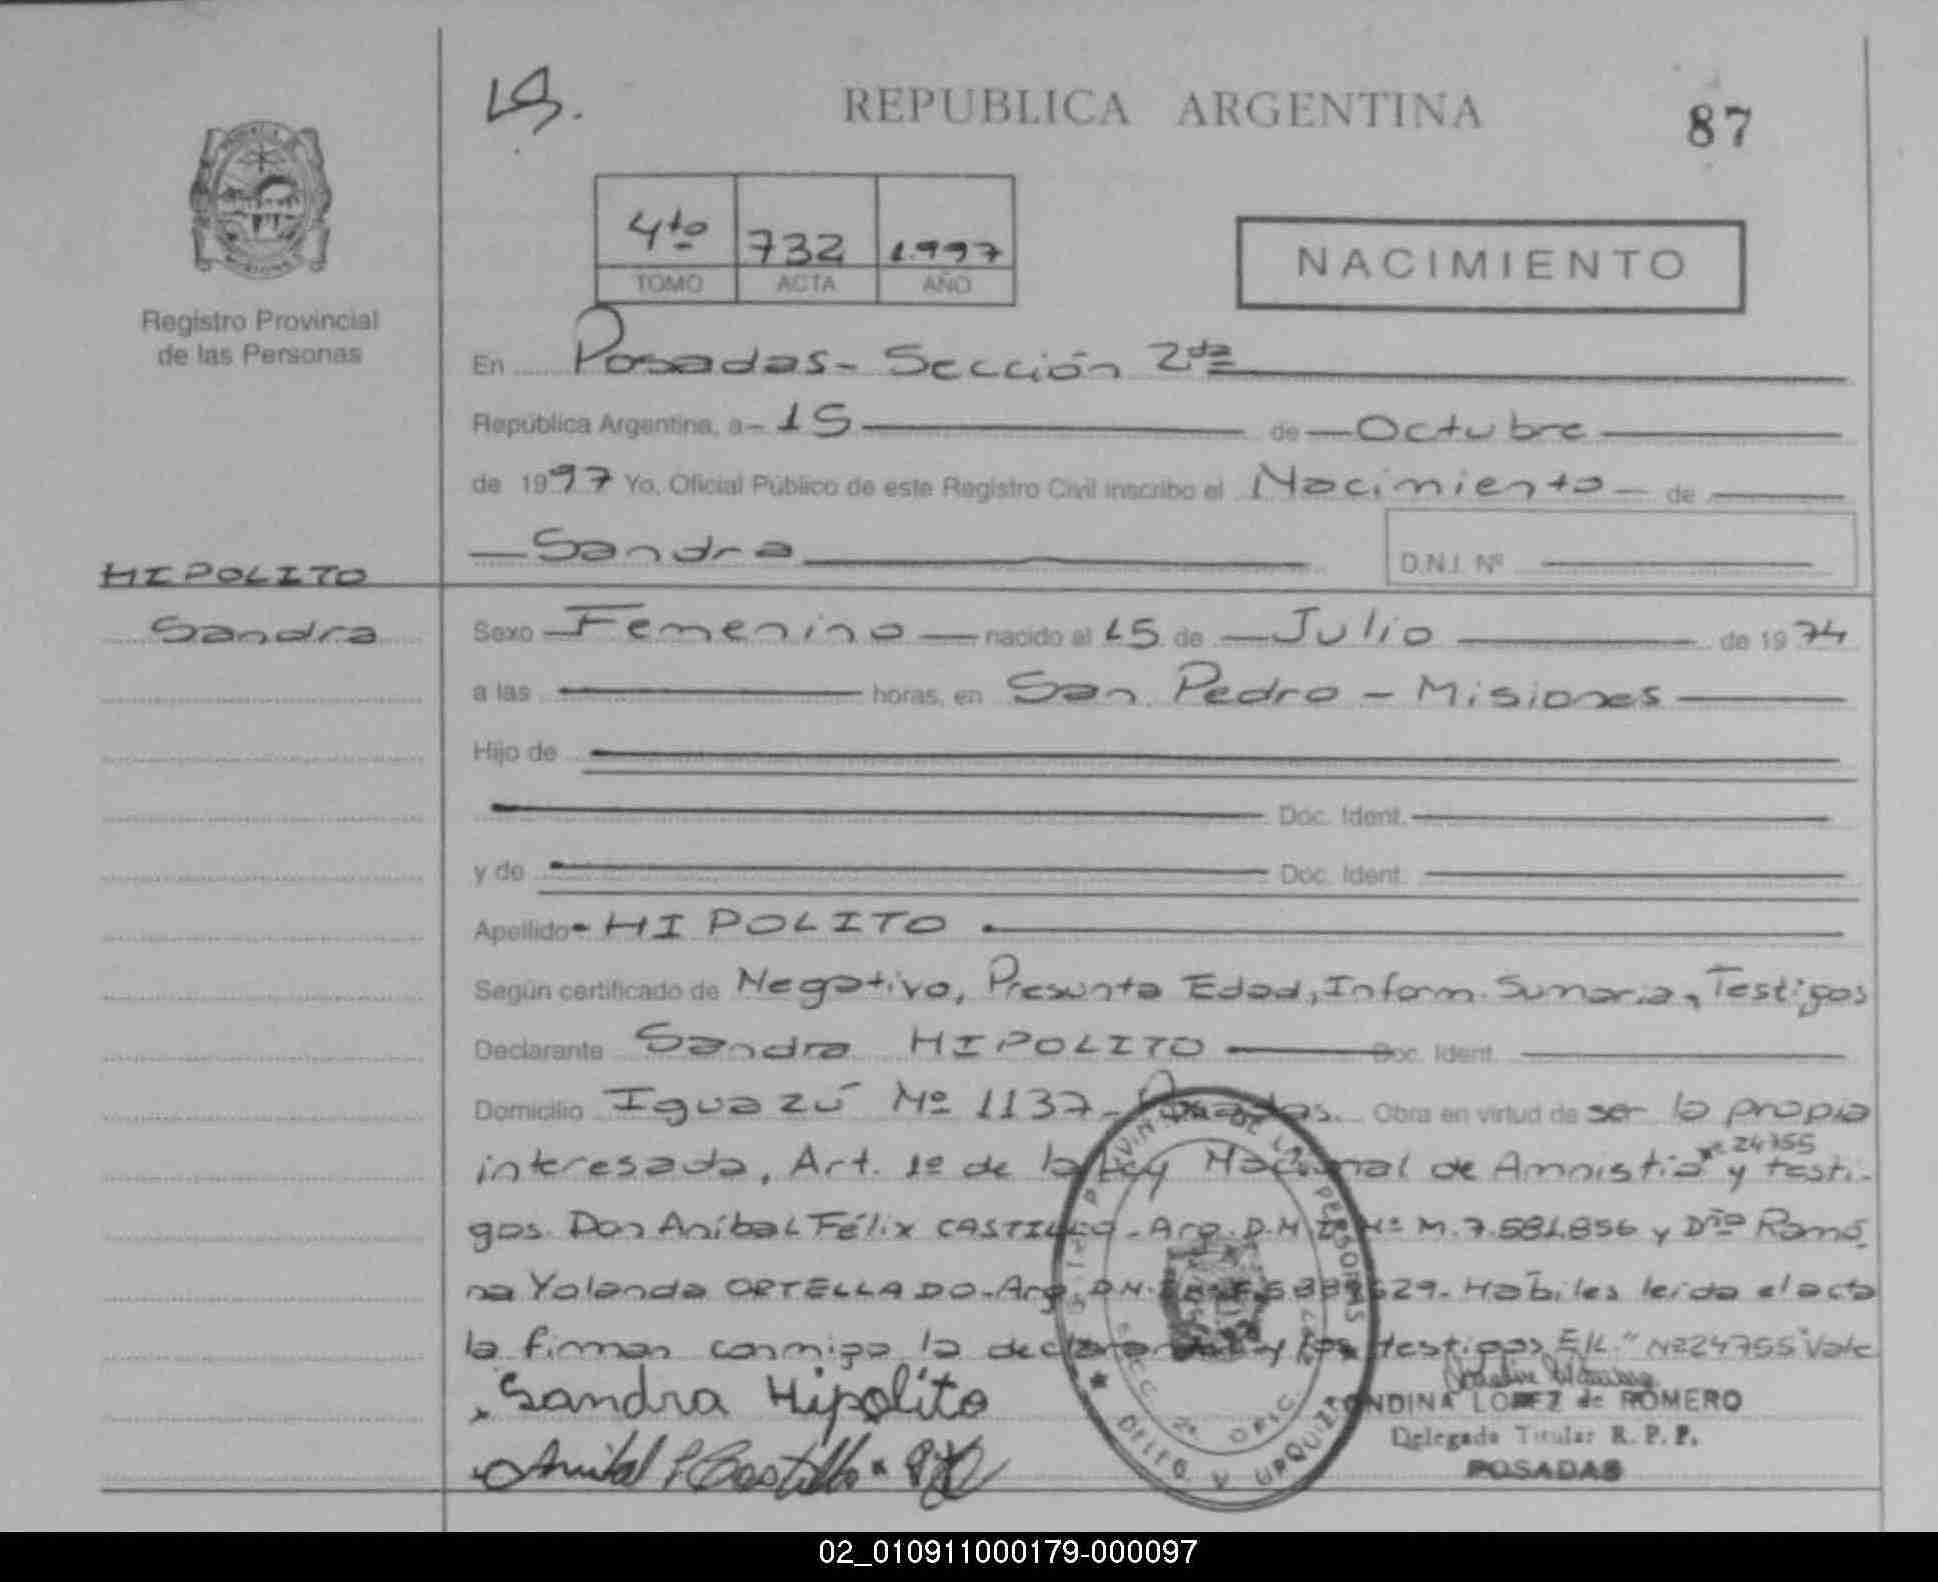 REPUBLICA ARGENTINA
87
4to 732 1.997
TOMO ACTA AÑO
NACIMIENTO
Registro Provincial
de las Personas
En Posadas - Sección 2da
República Argentina, a 15 de Octubre
de 1997 Yo, Oficial Público de este Registro Civil inscribo el Nacimiento de
Sandra
D.N.I. Nº
HIPOLITO
Sandra
Sexo Femenino nacido el 15 de Julio de 1974
a las horas, en San Pedro - Misiones
Hijo de
Doc. Ident.
y de Doc. Ident.
Apellido HIPOLITO
Según certificado de Negativo, Presunta Edad, Inform. Sumaria, Testigos
Declarante Sandra HIPOLITO Doc. Ident.
Domicilio Iguazú Nº 1137 - Posadas. Obra en virtud de ser la propia
interesada, Art. 1º de la Ley Nacional de Amnistia Nº 24755 y testi-
gos Don Aníbal Félix CASTILLO - Arg. D.N.I. Nº M.7.581.856 y Dña Ramo-
na Yolanda ORTELLADO - Arg. D.N.I. - Hábiles leida el acta
la firman conmigo la declarante y los testigos E/L. "Nº24755" Vale
Sandra Hipolito
Anibal F Castillo
ONDINA LOPEZ de ROMERO
Delegada Titular R. P. P.
POSADAS
DE LAS PERSONAS
SECC. 2ª OFIC.
DELEG
URQUIZA
02_010911000179-000097